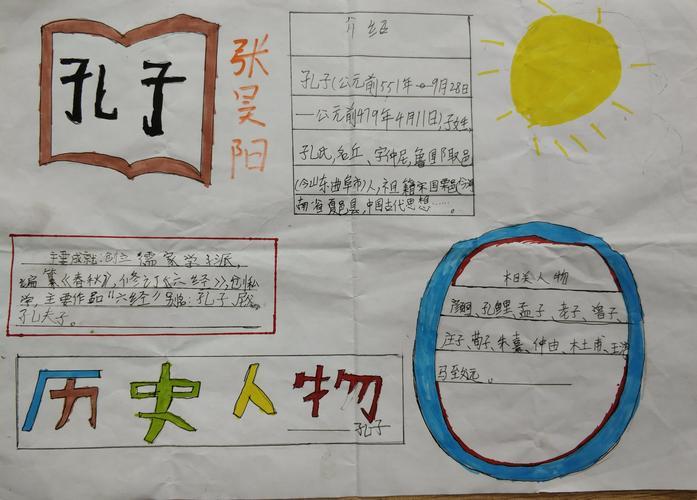 孔子
张昊阳
介绍
孔子(公元前551年9月28日
—公元前479年4月11日),子姓,
孔氏,名丘,字仲尼,鲁国陬邑
(今山东曲阜市)人,祖籍宋国栗邑(今河
南省夏邑县,中国古代思想……
主要成就:创立儒家学派,
编纂《春秋》,修订《六经》,创私
学,主要作品"六经"别名:孔子,尼
孔夫子。
历史人物
——孔子
相关人物
颜回、孔鲤、孟子、老子、曾子、
庄子、荀子、朱熹、仲由、杜甫、王
马致远。